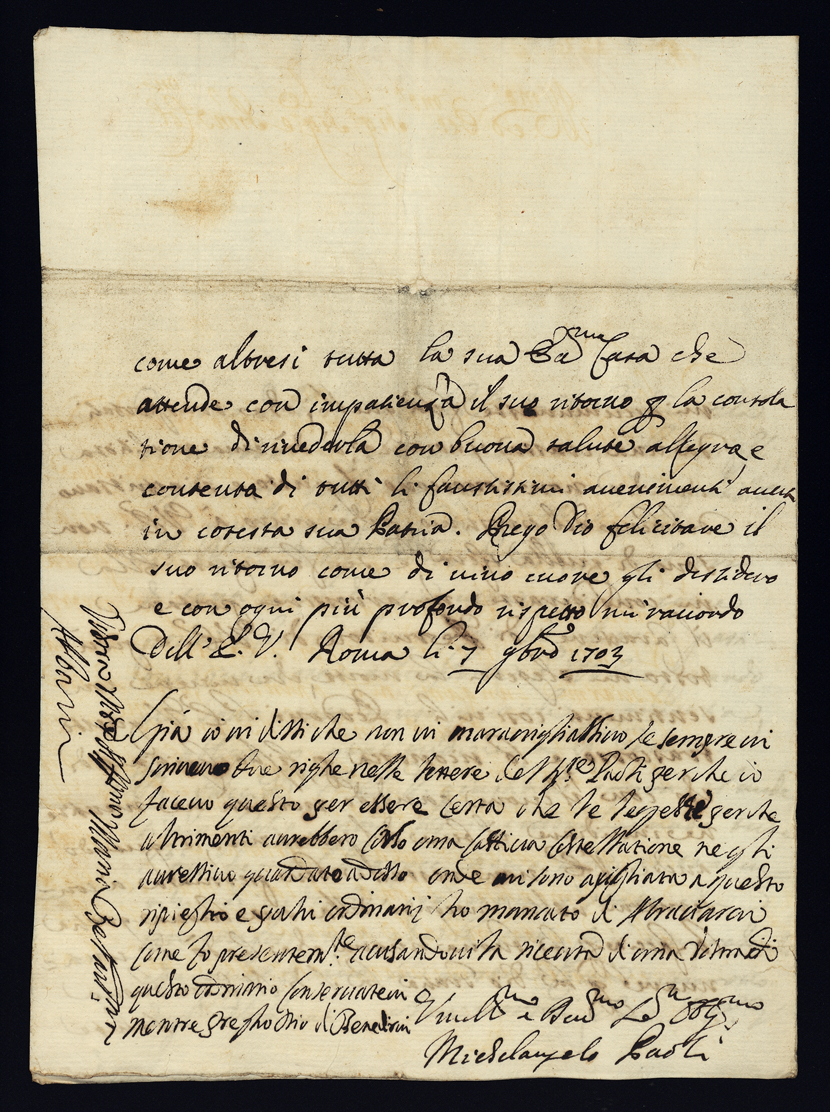 come altresi tutta la sua Ecc.ma Casa che
attende con impatienza il suo ritorno p la consola
tione di rivederla con buona salute allegra, e
contenta di tutti li faustissimi avenimenti avuti
in cotesta sua Patria. Prego Dio felicitare il
suo ritorno come di vivo cuore gli desidero
e con ogni più profondo rispetto mi raccordo
Dell' E. V. Roma li 7 9bre 1703
Già io vi dissi che non vi maravigliassivo se sempre vi
scrivevo due righe nelle lettere del Paoli perche io
facevo questo per essere certa che le leggeste perche
altrimenti averebbero corso una cattiva costellatione ne gli
avressivo guardate adesso onde mi sono apigliata a questo
ripiegho e pochi ordinarij ho mancato di
come fo presentem.te acusandovi la ricevuta d'una di
questo ordinario conservatevi
mentre pregho Dio vi Benedichi
Um.o e Dev.mo Se.re Obl.mo
Michelangelo Paoli
Maria Bernardina
Albani